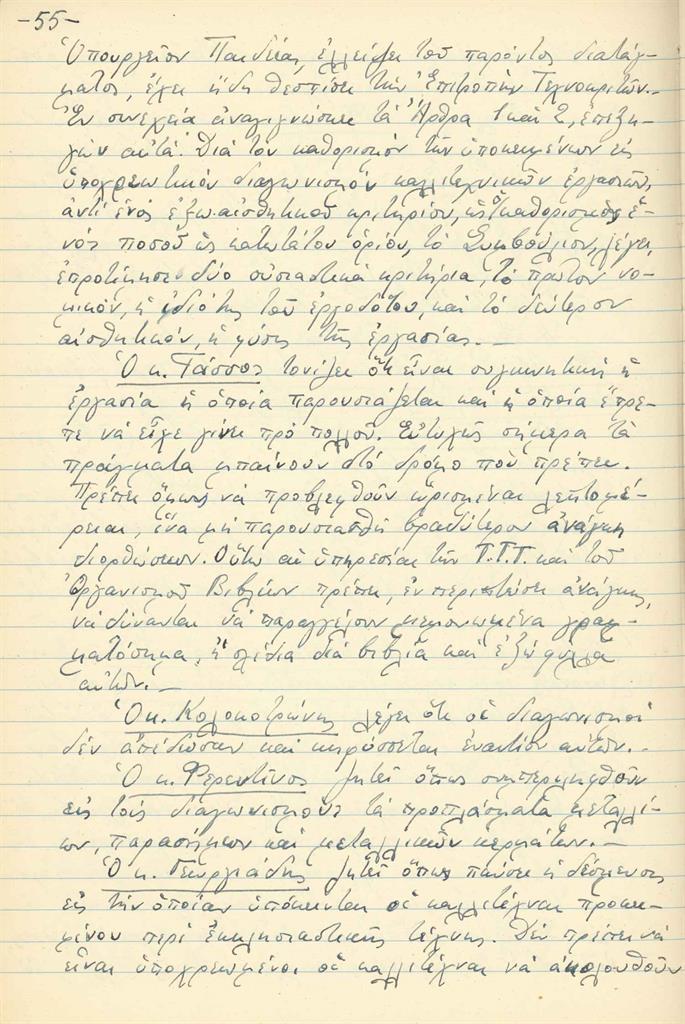 -55-
Ὑπουργεῖον Παιδείας, ἐλλείψει τοῦ παρόντος διατάγ-
ματος, ἔχει ἤδη θεσπίσει τὴν Ἐπιτροπὴν Τεχνοκριτῶν.-
Ἐν συνεχείᾳ ἀναγιγνώσκει τὰ Ἄρθρα 1 καὶ 2, ἐπεξη-
γῶν αὐτά. Διὰ τὸν καθορισμὸν τῶν ὑποκειμένων εἰς
ὑποχρεωτικὸν διαγωνισμὸν καλλιτεχνικῶν ἐργασιῶν,
ἀντὶ ἑνὸς ἐξωαισθητικοῦ κριτηρίου, ὡς ὁ καθορισμὸς ἑ-
νὸς ποσοῦ ὡς κατωτάτου ὁρίου, τὸ Συμβούλιον, λέγει,
ἐπροτίμησε δύο οὐσιαστικὰ κριτήρια, τὸ πρῶτον νο-
μικόν, ἡ ἰδιότης τοῦ ἐργοδότου, καὶ τὸ δεύτερον
αἰσθητικόν, ἡ φύσις τῆς ἐργασίας.-
Ὁ κ. Τάσσος τονίζει ὅτι εἶναι συγκινητικὴ ἡ
ἐργασία ἡ ὁποία παρουσιάζεται καὶ ἡ ὁποία ἔπρε-
πε νὰ εἶχε γίνει πρὸ πολλοῦ. Εὐτυχῶς σήμερα τὰ
πράγματα μπαίνουν στὸ δρόμο ποὺ πρέπει.
Πρέπει ὅμως νὰ προβλεφθοῦν ὡρισμέναι λεπτομέ-
ρειαι, ἵνα μὴ παρουσιασθῇ βραδύτερον ἀνάγκη
διορθώσεων. Οὕτω αἱ ὑπηρεσίαι τῶν Τ.Τ.Τ. καὶ τοῦ
Ὀργανισμοῦ Βιβλίων πρέπει, ἐν περιπτώσει ἀνάγκης,
νὰ δύνανται νὰ παραγγείλουν μεμονωμένα γραμ-
ματόσημα, ἢ σχέδια διὰ βιβλία καὶ ἐξώφυλλα
αὐτῶν.-
Ὁ κ. Κολοκοτρώνης λέγει ὅτι οἱ διαγωνισμοὶ
δὲν ἀπέδωσαν καὶ κηρύσσεται ἐναντίον αὐτῶν.-
Ὁ κ. Φερεντῖνος ζητεῖ ὅπως συμπεριληφθοῦν
εἰς τοὺς διαγωνισμοὺς τὰ προπλάσματα μεταλλί-
ων, παρασήμων καὶ μεταλλικῶν κερμάτων.-
Ὁ κ. Γεωργιάδης ζητεῖ ὅπως παύσει ἡ δέσμευσις
εἰς τὴν ὁποίαν ὑπόκεινται οἱ καλλιτέχναι προκει-
μένου περὶ ἐκκλησιαστικῆς τέχνης. Δὲν πρέπει νὰ
εἶναι ὑποχρεωμένοι οἱ καλλιτέχναι νὰ ἀκολουθοῦν